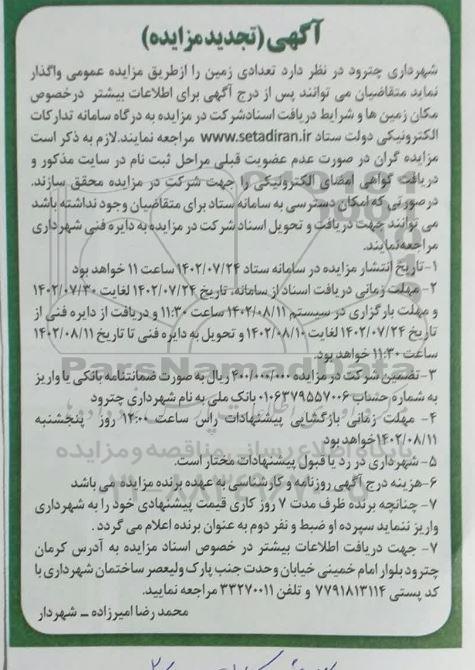 آگهی (تجدید مزایده)
شهرداری چترود در نظر دارد تعدادی زمین را ازطریق مزایده عمومی واگذار
نماید متقاضیان می توانند پس از درج آگهی برای اطلاعات بیشتر درخصوص
مکان زمین ها و شرایط دریافت اسنادشرکت در مزایده به درگاه سامانه تدارکات
الکترونیکی دولت ستاد www.setadiran.ir مراجعه نمایند.لازم به ذکر است
مزایده گران در صورت عدم عضویت قبلی مراحل ثبت نام در سایت مذکور و
دریافت گواهی امضای الکترونیکی را جهت شرکت در مزایده محقق سازند.
درصورتی که امکان دسترسی به سامانه ستاد برای متقاضیان وجود نداشته باشد
می توانند جهت دریافت و تحویل اسناد شرکت در مزایده به دایره فنی شهرداری
مراجعه نمایند.
۱-تاریخ انتشار مزایده در سامانه ستاد ۱۴۰۲/۰۷/۲۴ ساعت ۱۱ خواهد بود
۲- مهلت زمانی دریافت اسناد از سامانه، تاریخ ۱۴۰۲/۰۷/۲۴ لغایت ۱۴۰۲/۰۷/۳۰
و مهلت بارگزاری در سیستم ۱۴۰۲/۰۸/۱۱ ساعت ۱۱:۳۰ و دریافت از دایره فنی از
تاریخ ۱۴۰۲/۰۷/۲۴ لغایت ۱۴۰۲/۰۸/۱۰ و تحویل به دایره فنی تا تاریخ ۱۴۰۲/۰۸/۱۱
ساعت ۱۱:۳۰ خواهد بود.
۳-تضمین شرکت در مزایده ۴۰۰/۰۰۰/۰۰۰ ریال به صورت ضمانتنامه بانکی یا واریز
به شماره حساب ۰۱۰۶۳۷۹۵۵۷۰۰۶ بانک ملی به نام شهرداری چترود
۴- مهلت زمانی بازگشایی پیشنهادات راس ساعت ۱۲:۰۰ روز پنجشنبه
۱۴۰۲/۰۸/۱۱ خواهد بود
۵-شهرداری در رد یا قبول پیشنهادات مختار است.
۶-هزینه درج آگهی روزنامه و کارشناسی به عهده برنده مزایده می باشد
۷- چنانچه برنده ظرف مدت ۷ روز کاری قیمت پیشنهادی خود را به شهرداری
واریز ننماید سپرده او ضبط و نفر دوم به عنوان برنده اعلام می گردد .
۷- جهت دریافت اطلاعات بیشتر در خصوص اسناد مزایده به آدرس کرمان
چترود بلوار امام خمینی خیابان وحدت جنب پارک ولیعصر ساختمان شهرداری با
کد پستی ۷۷۹۱۸۱۳۱۱۴ و تلفن ۳۳۲۷۰۰۱۱ مراجعه نمایید.
محمد رضا امیرزاده – شهردار
ParsNamadData
پایگاه اطلاع رسانی مناقصه و مزایده